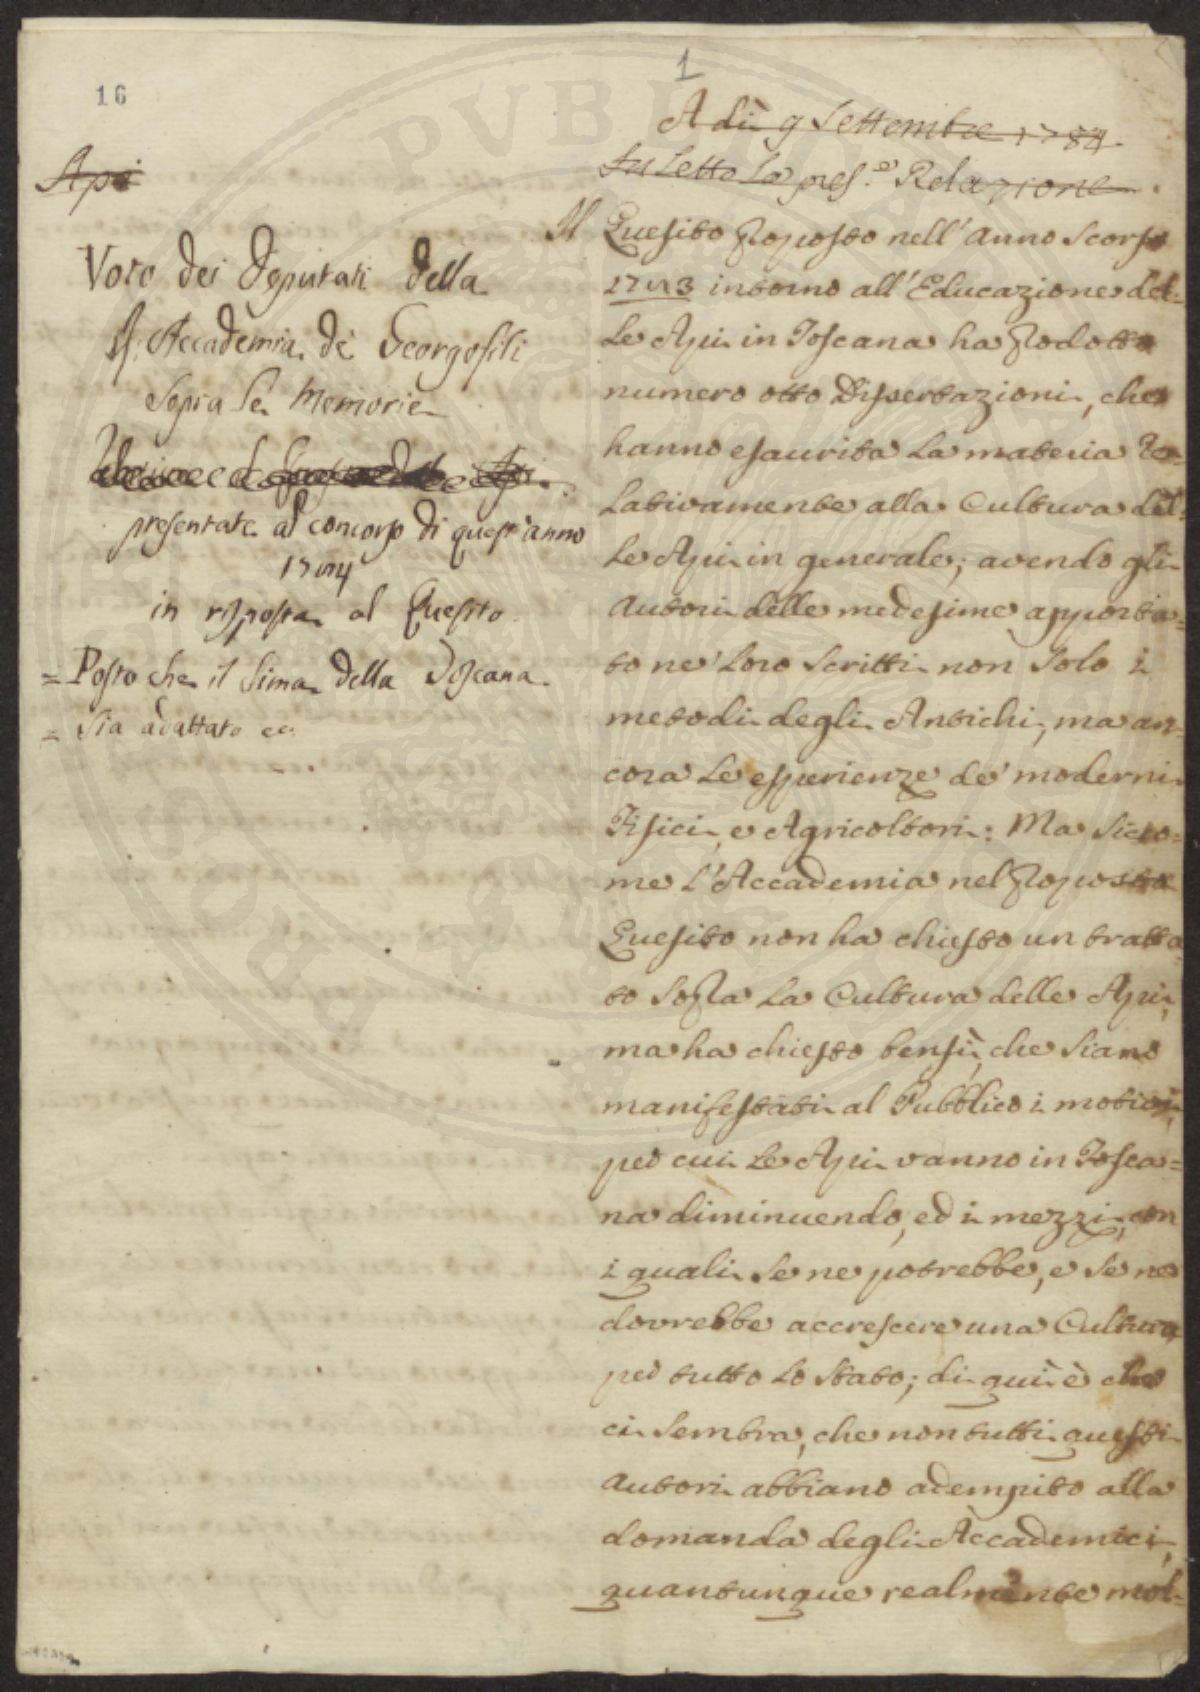 16
1
A dì 9 Settembre 1784.
fu Letto La pres.e Relazione.
Api
Voto dei Deputati della
R. Accademia de' Georgofili
Sopra le Memorie
presentate al concorso di quest'anno
1784
in risposta al Quesito
= Posto che il Clima della Toscana
= Sia adattato ec.
Il Quesito proposto nell'Anno Scorso
1783 intorno all'Educazione del=
Le Api in Toscana ha prodotto
numero otto Dissertazioni, che
hanno esaurita La materia Re=
Lativamente alla Cultura del=
Le Api in generale; avendo gli
Autori delle medesime apporta=
to ne' Loro Scritti non Solo i
metodi degli Antichi, ma an=
cora Le esperienze de' moderni
Fisici, e Agricoltori: Ma Sicco=
me L'Accademia nel proposto
Quesito non ha chiesto un tratta=
to Sopra La Cultura delle Api,
ma ha chiesto bensì, che Siano
manifestati al Pubblico i motivi,
per cui Le Api vanno in Tosca=
na diminuendo, ed i mezzi, con
i quali Se ne potrebbe, e Se ne
dovrebbe accrescere una Cultura
per tutto Lo Stato; di quì è che
ci Sembra, che non tutti questi
Autori abbiano adempito alla
domanda degli Accademici,
quantunque realmente mol=